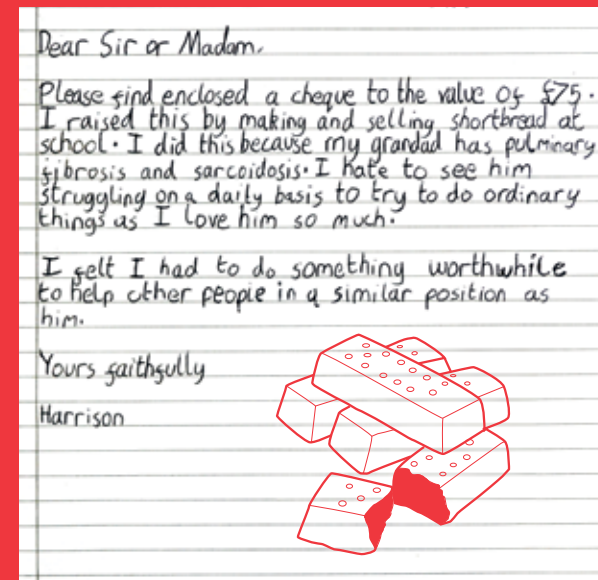 Dear Sir or Madam.
Please find enclosed a cheque to the value of £75.
I raised this by making and selling shortbread at
school. I did this because my grandad has pulminary
fibrosis and sarcoidosis. I hate to see him
struggling on a daily basis to try to do ordinary
things as I love him so much.
I felt I had to do something worthwhile
to help other people in a similar position as
him.
Yours faithfully
Harrison